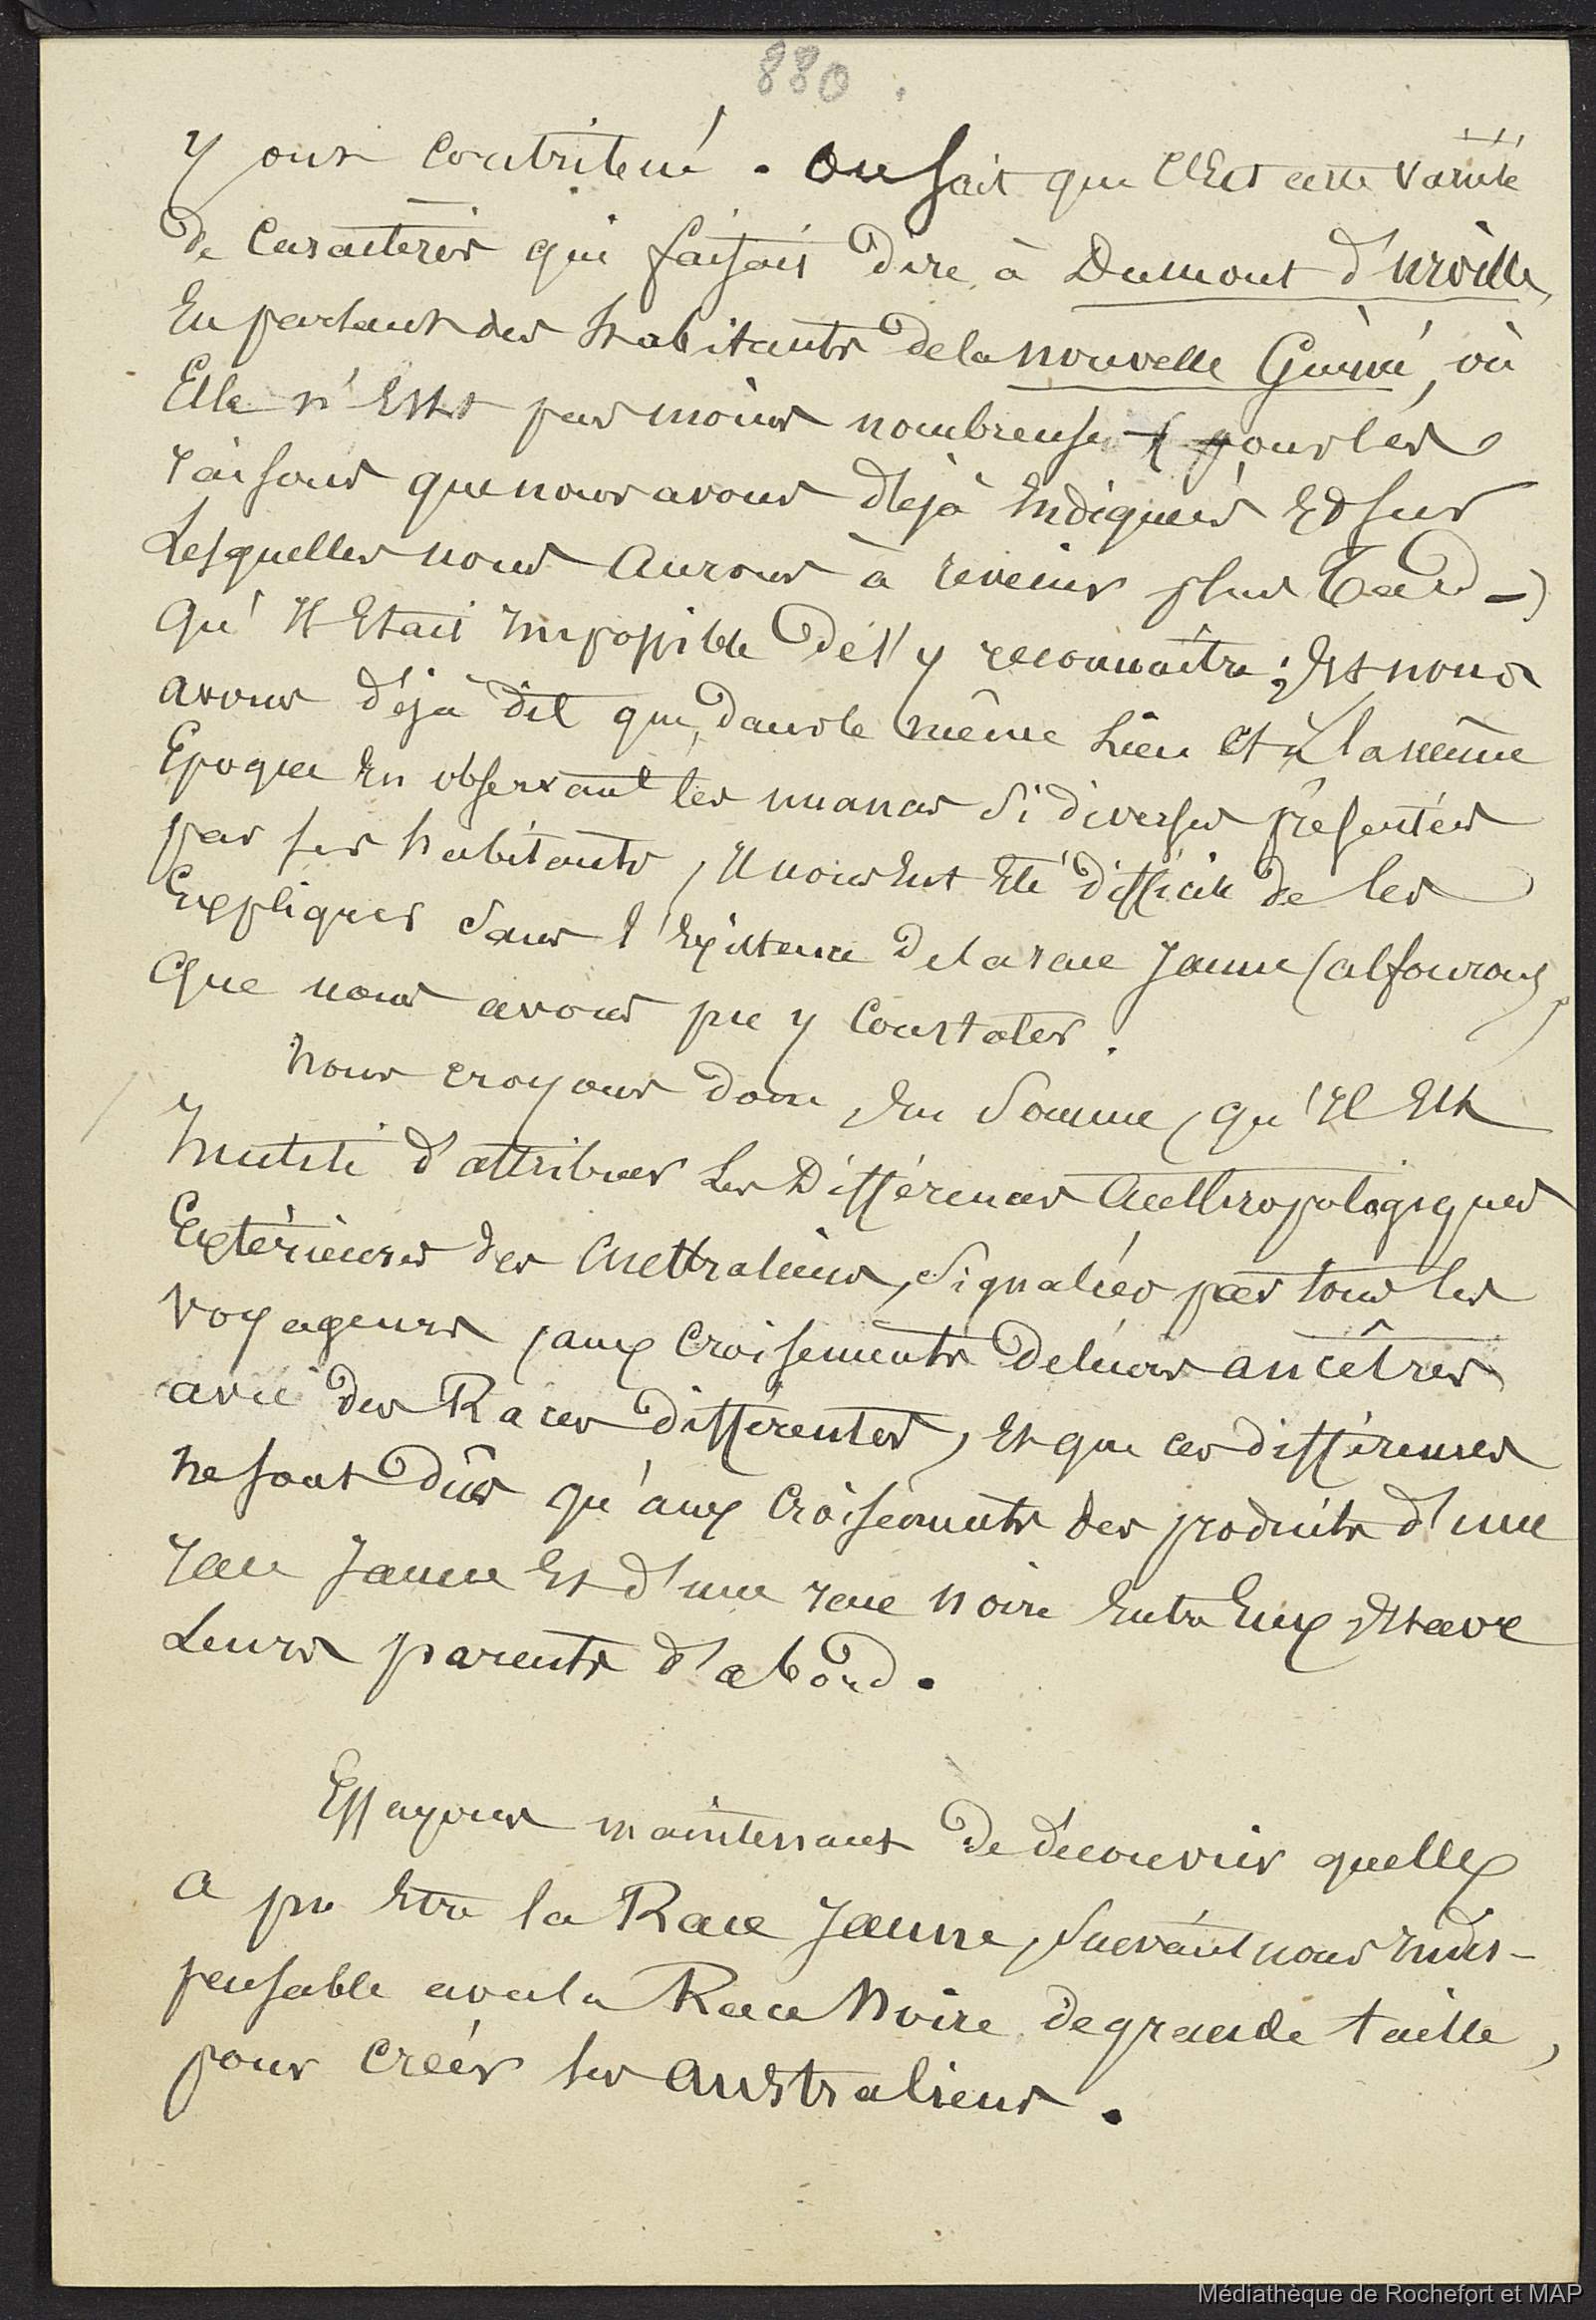 880.
y ont contribué. On sait que c'Est cette variété
de Caractères qui faisait dire à Dumont d'urville,
En parlant des habitants de la nouvelle Guinée, où
Elle n'Est pas moins nombreuse (pour les
raisons que nous avons déjà Indiquées Et sur
Lesquelles nous aurons à revenir plus Tard -)
qu'Il Etait Impossible de s'y reconnaître; Et nous
avons déjà dit que, dans le même Lieu Et à la même
Epoque En observant les nuances si diverses présentées
par ses habitants, Il nous Eut Eté difficile de les
Expliquer sans l'Existence de la race Jaune (alfourous)
que nous avons pu y Constater.
Nous croyons donc, En Somme, qu'Il Est
Inutile d'attribuer Les Différences Anthropologiques
Extérieures des Australiens, Signalées par tous les
Voyageurs, aux Croisements de leurs ancêtres
avec des Races différentes, Et que ces différences
ne sont dûes qu'aux Croisements des produits d'une
race Jaune Et d'une race noire Entre Eux Et avec
Leurs parents d'abord.
Essayons maintenant de découvrir quelle
a pu Etre la Race Jaune, Suivant nous Indis-
pensable avec la Race Noire de grande taille,
pour créer les Australiens.
Médiathèque de Rochefort et MAP